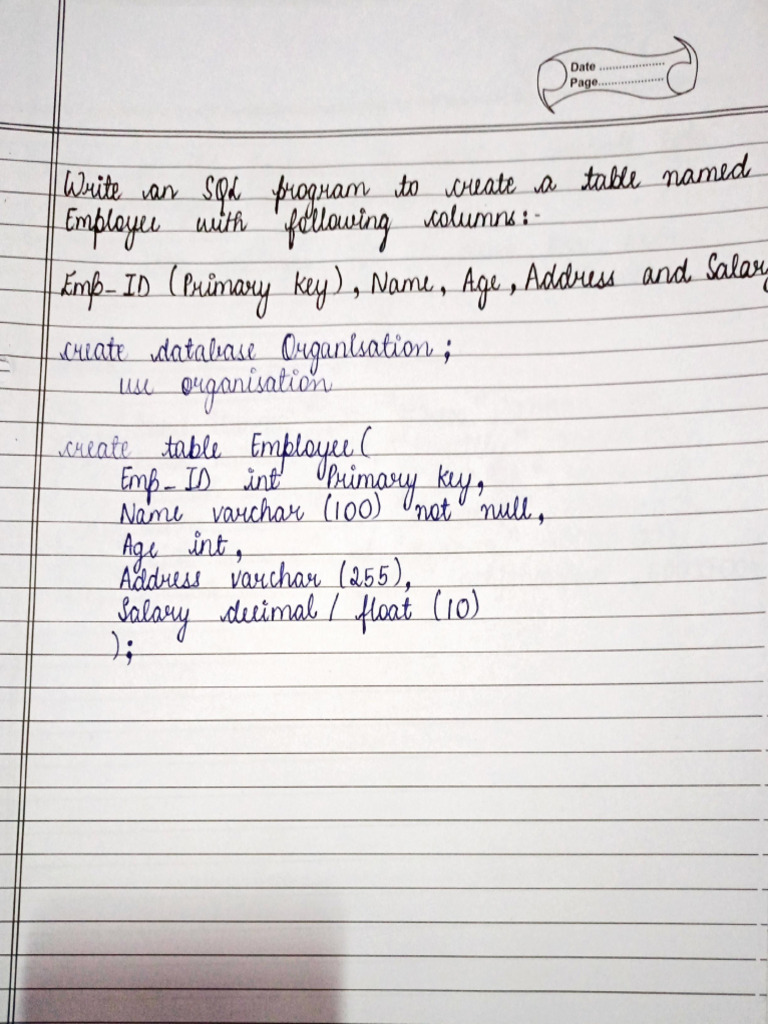 Date ....................
Page....................
Write an SQL program to create a table named
Employee with following columns:-
Emp_ID (Primary key), Name, Age, Address and Salary
create database Organisation;
use organisation
create table Employee(
Emp_ID int Primary key,
Name varchar (100) not null,
Age int,
Address varchar (255),
Salary decimal / float (10)
);